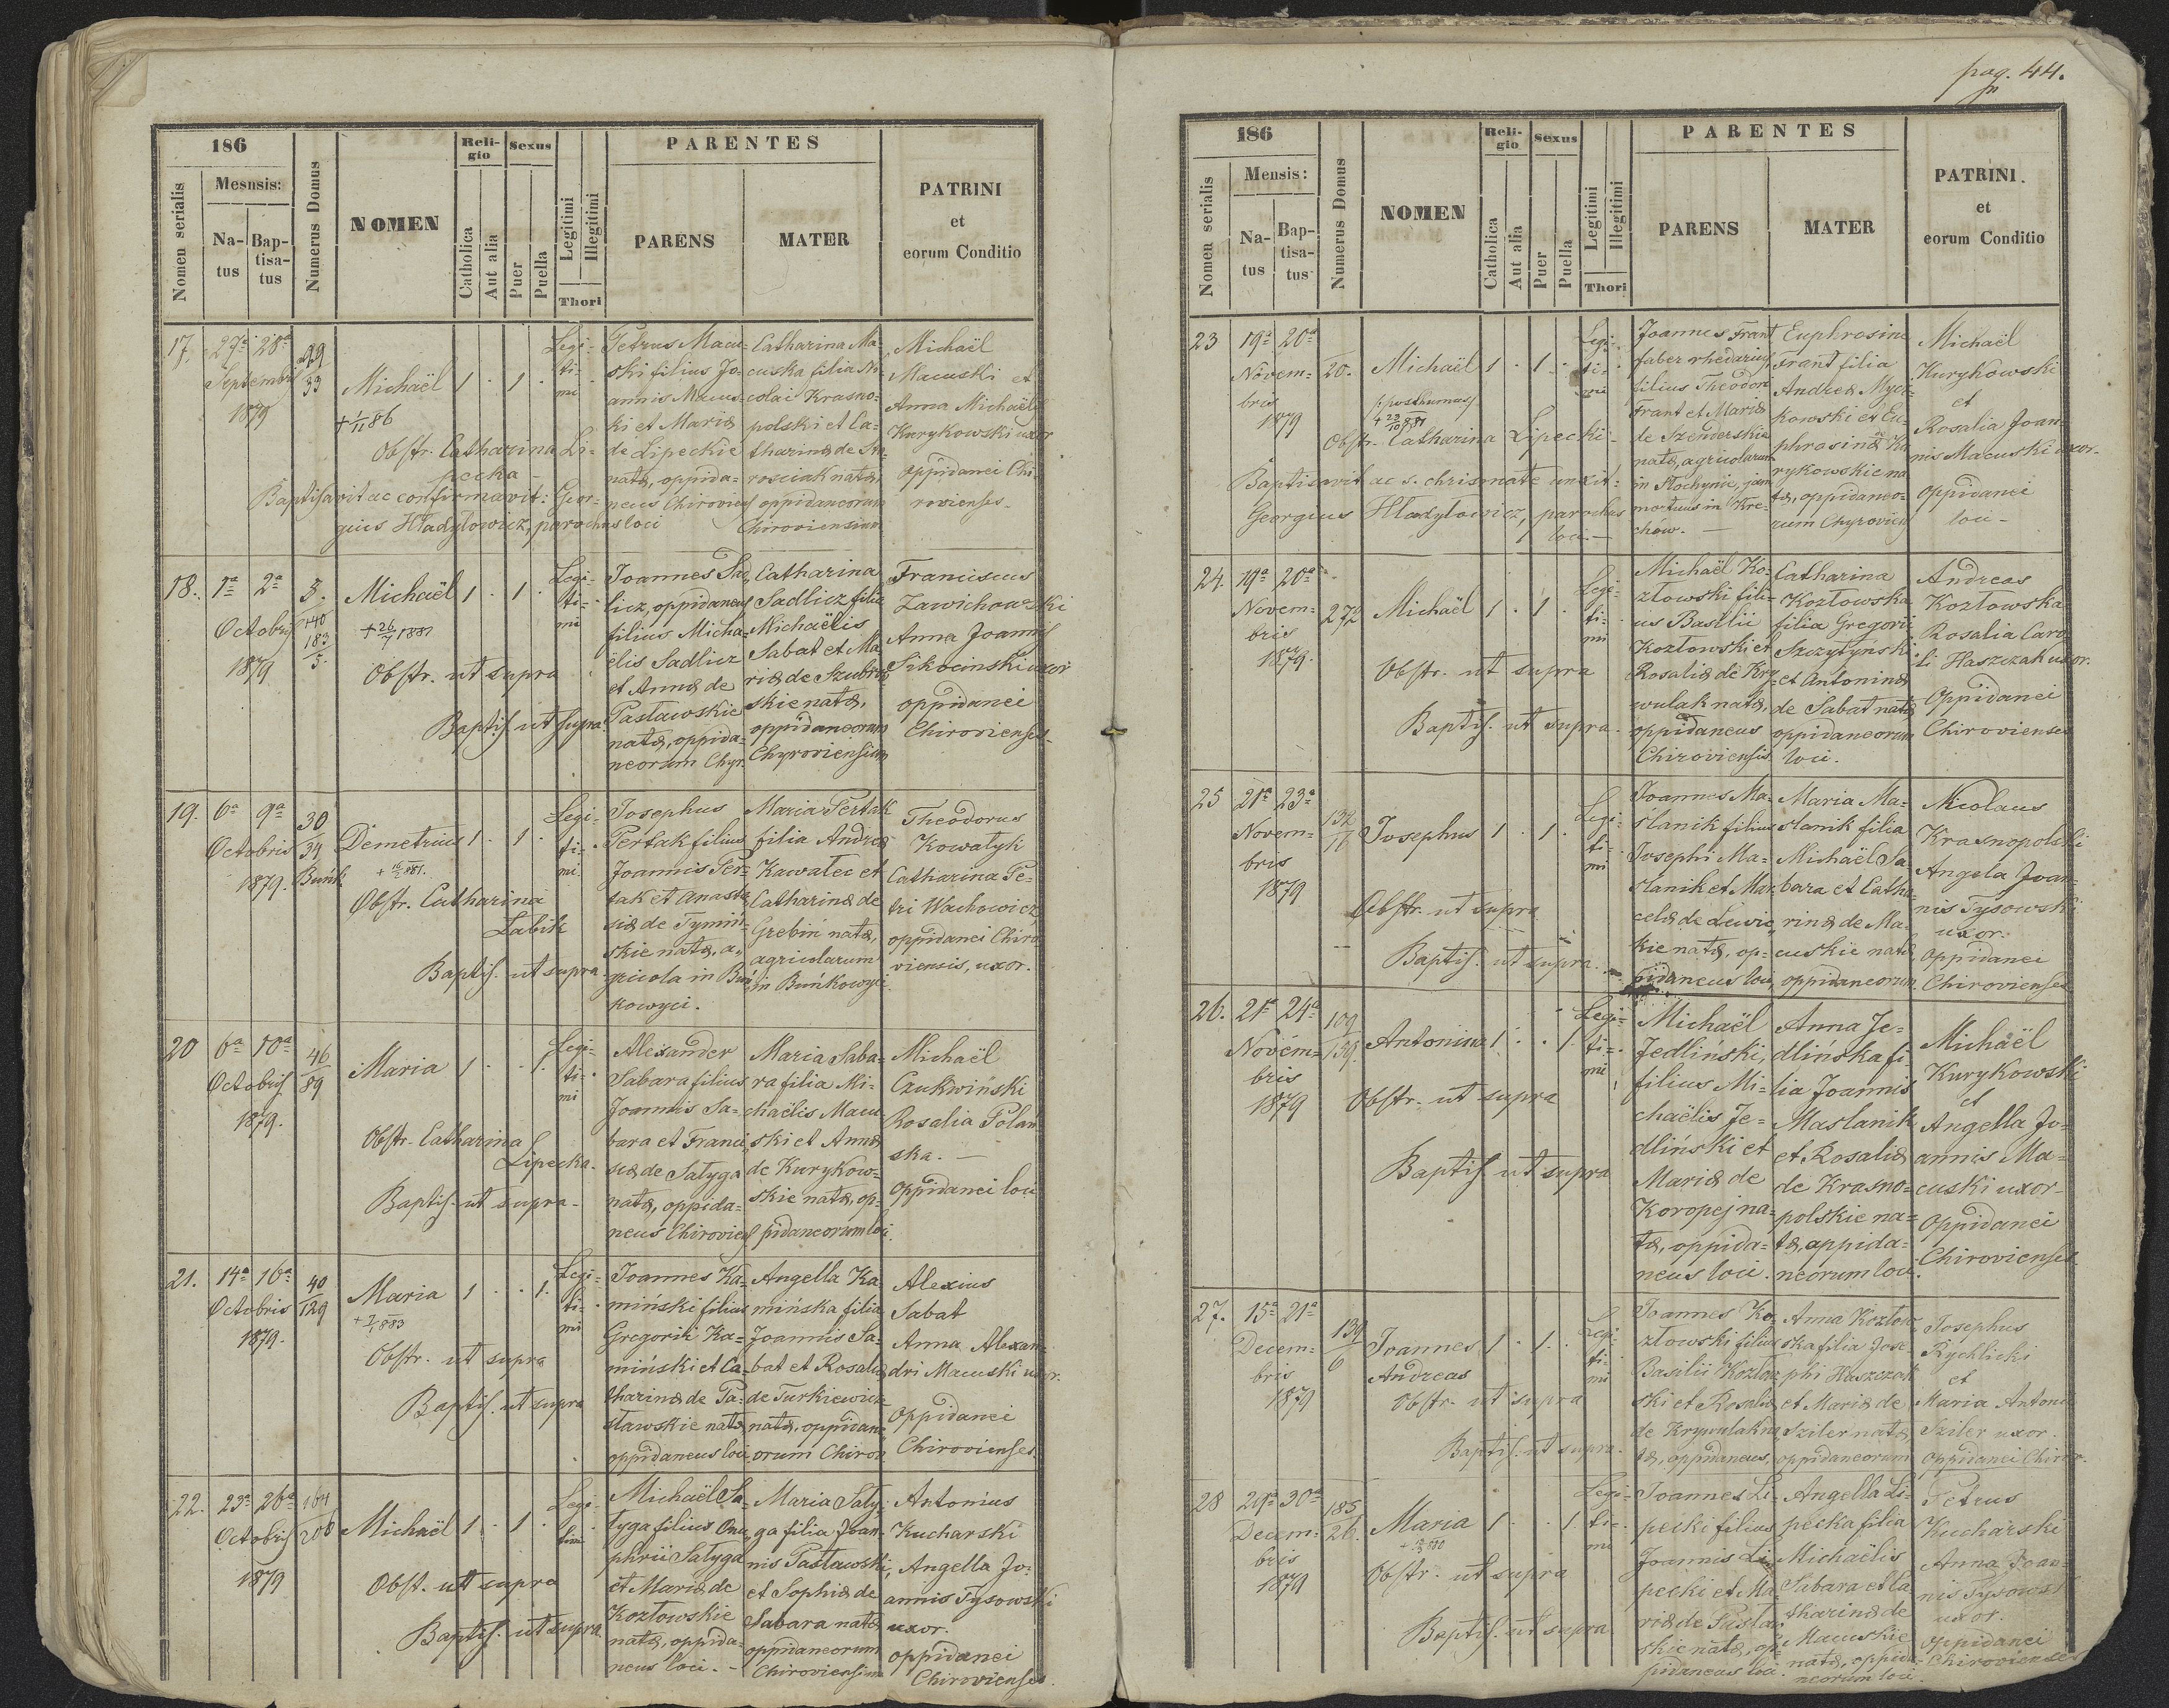 pag. 44.
186
Mesnsis:
Nomen serialis
Na-
tus
Bap-
tisa-
tus
Numerus Domus
NOMEN
Reli-
gio
Catholica
Aut alia
Sexus
Puer
Puella
Legitimi
Illegitimi
Thori
PARENTES
PARENS
MATER
PATRINI
et
eorum Conditio
17.
27ª 28ª
Septembris
1879
99
33
Michaël
1 · 1 ·
+ 1/11 86
Obstr. Catharina Li-
pecka -
Baptisavit ac confirmavit: Geor-
gius Hładyłowicz, parochus loci
Legi-
ti-
mi
Petrus Macu-
ski filius Jo-
annis Macus-
ki et Mariæ
de Lipeckie
natæ, oppida-
neus Chirovien
Catharina Ma-
cuska filia Ni-
colai Krasno-
polski et Ca-
tharinæ de Sta-
rosciak natæ,
oppidaneorum
Chiroviensium
Michaël
Macuski et
Anna Michaëlis
Kurykowski uxor
oppidanei Chi-
rovienses.
18.
1ª 2ª
Octobris
1879
3.
140
183
5.
Michaël
1 · 1 ·
+ 26/7 1881
Obstr. ut supra
Baptis. ut supra
Legi-
ti-
mi
Joannes Sad-
licz, oppidaneus
filius Micha-
ëlis Sadlicz
et Annæ de
Pasławskie
natæ, oppida-
neorum Chyr.
Catharina
Sadlicz filia
Michaëlis
Sabat et Ma-
riæ de Szubra-
skie natæ,
oppidaneorum
Chyroviensium
Franciscus
Zawichowski
Anna Joannis
Sikocinski uxor
oppidanei
Chirovienses
19.
6ª 9ª
Octobris
1879.
30
34
Buńk.
Demetrius
1 · 1 ·
Obstr. Catharina
Labik
Baptis. ut supra
Legi-
ti-
mi
Josephus
Pertak filius
Joannis Per-
tak et Anasta-
siæ de Tymiń-
skie natæ, a-
gricola in Buń-
kowyci.
Maria Pertak
filia Andreæ
Kawalec et
Catharinæ de
Grebiń natæ,
agricolarum
in Buńkowyci.
Theodorus
Kowalyk
Catharina Pe-
tri Wachowicz
oppidanei Chiro-
viensis, uxor.
20
6ª 10ª
Octobris
1879.
46
89
Maria
1 · · 1
Obstr. Catharina
Lipecka.
Baptis. ut supra.
Legi-
ti-
mi
Alexander
Sabara filius
Joannis Sa-
bara et Franci-
scæ de Sałyga
natæ, oppida-
neus Chirovien
Maria Saba-
ra filia Mi-
chaëlis Macu-
ski et Annæ
de Kurykow-
skie natæ, op-
pidaneorum loci.
Michaël
Czukwiński
Rosalia Polań-
ska. —
oppidanei loci
21.
14ª 16ª
Octobris
1879.
40
129
Maria
1 · · 1.
+ 7/1 883
Obstr. ut supra
Baptis. ut supra
Legi-
ti-
mi
Joannes Ka-
miński filius
Gregorii Ka-
miński et Ca-
tharinæ de Pa-
sławskie natæ
oppidaneus loci
Angella Ka-
mińska filia
Joannis Sa-
bat et Rosaliæ
de Turkiewicz
natæ, oppidane-
orum Chirov.
Alexius
Sabat
Anna Alexan-
dri Macuski uxor.
oppidanei
Chirovienses.
22.
23ª 26ª
Octobris
1879
164
206
Michaël
1 · 1 ·
Obst. ut supra
Baptis. ut supra.
Legi-
timi
Michaël Sa-
łyga filius Onu-
phrii Sałyga
et Mariæ de
Kozłowskie
natæ, oppida-
neus loci. -
Maria Sały-
ga filia Joan-
nis Pasławski
et Sophiæ de
Sabara natæ
oppidaneorum
Chiroviensium
Antonius
Kucharski
Angella Jo-
annis Tysowski
uxor.
oppidanei
Chirovienses.
186
Mensis:
Nomen serialis
Na-
tus
Bap-
tisa-
tus
Numerus Domus
NOMEN
Reli-
gio
Catholica
Aut alia
Sexus
Puer
Puella
Legitimi
Illegitimi
Thori
PARENTES
PARENS
MATER
PATRINI
et
eorum Conditio
23
19ª 20ª
Novem-
bris
1879
20.
Michaël
1 · 1 ·
(posthumus)
Obstr. Catharina Lipecki-
Baptisavit ac s. chrismate unxit:
Georgius Hładyłowicz, parochus
loci —
Legi-
ti-
mi
Joannes Frant
faber rhedarius
filius Theodori
Frant et Mariæ
de Szenderskie
natæ, agricolarum
in Stochynie, jam
mortuus in Kre-
chów. —
Euphrosine
Frant filia
Andreæ Myck-
kowski et Eu-
phrosinæ Ku-
rykowskie na-
tæ, oppidaneo-
rum Chyrovien
Michaël
Kurykowski
et
Rosalia Joan-
nis Macuski uxor.
oppidanei
loci -
24.
19ª 20ª
Novem-
bris
1879.
272
Michaël
1 · 1 ·
Obstr. ut supra
Baptis. ut supra.
Legi-
ti-
mi
Michaël Ko-
złowski fili-
us Basilii
Kozłowski et
Rosaliæ de Kry-
wulak natæ,
oppidaneus
Chiroviensis
Catharina
Kozłowska
filia Gregorii
Szczytyński
et Antoninæ
de Sabat natæ
oppidaneorum
loci.
Andreas
Kozłowska
Rosalia Caro-
li Haszczak uxor.
Oppidanei
Chirovienses
25
21ª 23ª
Novem-
bris
1879
132
17
Josephus
1 · 1 ·
Obstr. ut supra
Baptis. ut supra.
Legi-
ti-
mi
Joannes Ma-
slanik filius
Josephi Ma-
slanik et Mar-
celæ de Lewic-
kie natæ, op-
pidaneus loci
Maria Ma-
slanik filia
Michaël Sa-
bara et Catha-
rinæ de Ma-
cuskie natæ
oppidaneorum.
Nicolaus
Krasnopolski
Angela Joan-
nis Tysowski
uxor.
oppidanei
Chirovienses
26.
21ª 24ª
Novem-
bris
1879
109
159.
Antonina
1 · · 1
Obstr. ut supra
Baptis. ut supra
Legi-
ti-
mi
Michaël
Jedliński,
filius Mi-
chaëlis Je-
dliński et
Mariæ de
Koropej na-
tæ, oppida-
neus loci.
Anna Je-
dlińska fi-
lia Joannis
Maslanik
et Rosaliæ
de Krasno-
polskie na-
tæ, oppida-
neorum loci.
Michaël
Kurykowski
et
Angella Jo-
annis Ma-
cuski uxor-
oppidanei
Chirovienses
27.
15ª 21ª
Decem-
bris
1879
139
6
Joannes
Andreas
1 · 1 ·
Obstr. ut supra
Baptis. ut supra.
Legi-
ti-
mi
Joannes Ko-
złowski filius
Basilii Kozłow-
ski et Rosaliæ
de Krywulak na-
tæ, oppidaneus,
Anna Kozłow-
ska filia Jose-
phi Haszczak
et Mariæ de
Sziler natæ,
oppidaneorum
Josephus
Rychlicki
et
Maria Antonii
Sziler uxor.
oppidanei Chirov.
28
29ª 30ª
Decem-
bris
1879
185
26.
Maria
1 · · 1
Obstr. ut supra
Baptis. ut supra
Legi-
ti-
mi
Joannes Li-
pecki filius
Joannis Li-
pecki et Ma-
riæ de Pasław-
skie natæ, op-
pidaneus loci.
Angella Li-
pecka filia
Michaëlis
Sabara et Ca-
tharinæ de
Macuskie
natæ, oppida-
neorum loci
Petrus
Kucharski
Anna Joan-
nis Tysowski
uxor.
oppidanei
Chirovienses